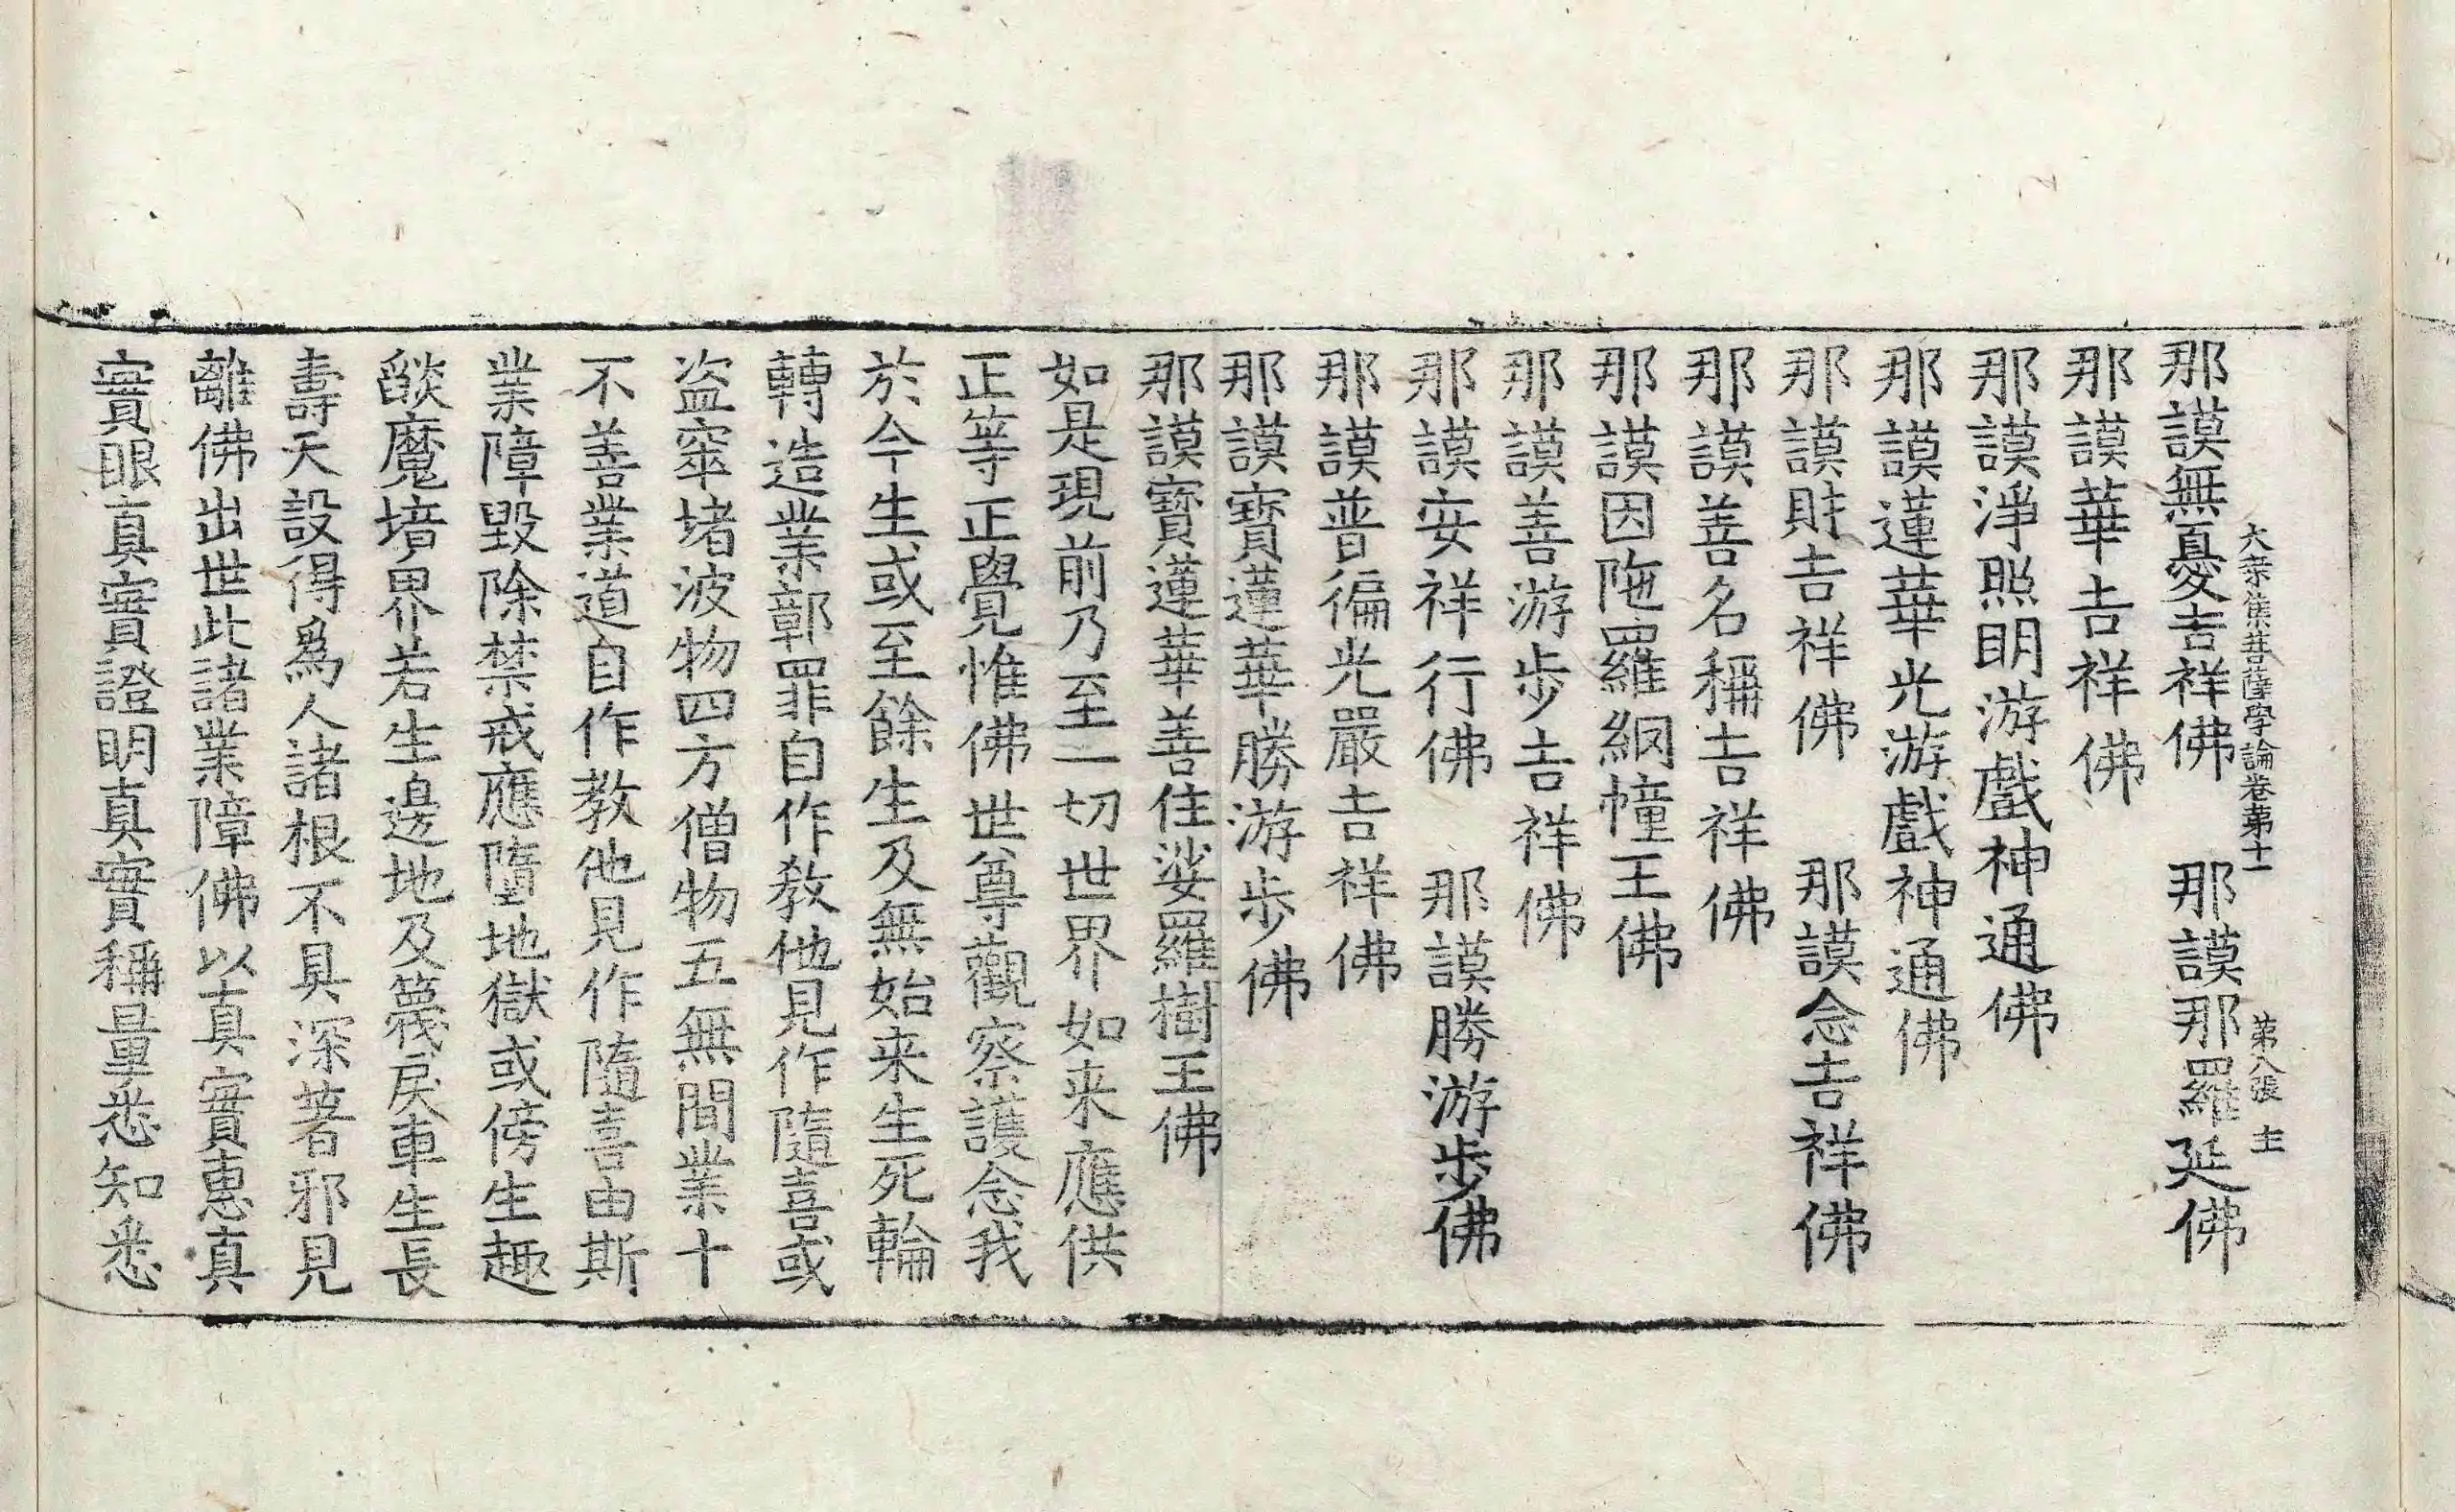 那謨無憂吉祥佛　那謨那羅延佛
大乘集菩薩學論卷第十一　第八張　主
那謨華吉祥佛
那謨淨照明游戲神通佛
那謨蓮華光游戲神通佛
那謨財吉祥佛　那謨念吉祥佛
那謨善名稱吉祥佛
那謨因陁羅網幢王佛
那謨善游步吉祥佛
那謨安祥行佛　那謨勝游步佛
那謨普徧光嚴吉祥佛
那謨寶蓮華勝游步佛
那謨寶蓮華善住娑羅樹王佛
如是現前乃至一切世界如来應供
正等正覺惟佛世尊觀察護念我
於今生或至餘生及無始来生死輪
轉造業鄣罪自作教他見作隨喜或
盗窣堵波物四方僧物五無間業十
不善業道自作教他見作隨喜由斯
業障毀除禁戒應墮地獄或傍生趣
燄魔境界若生邊地及篾戾車生長
壽天設得爲人諸根不具深著邪見
離佛出世此諸業障佛以真實惠真
實眼真實證明真實稱量悉知悉